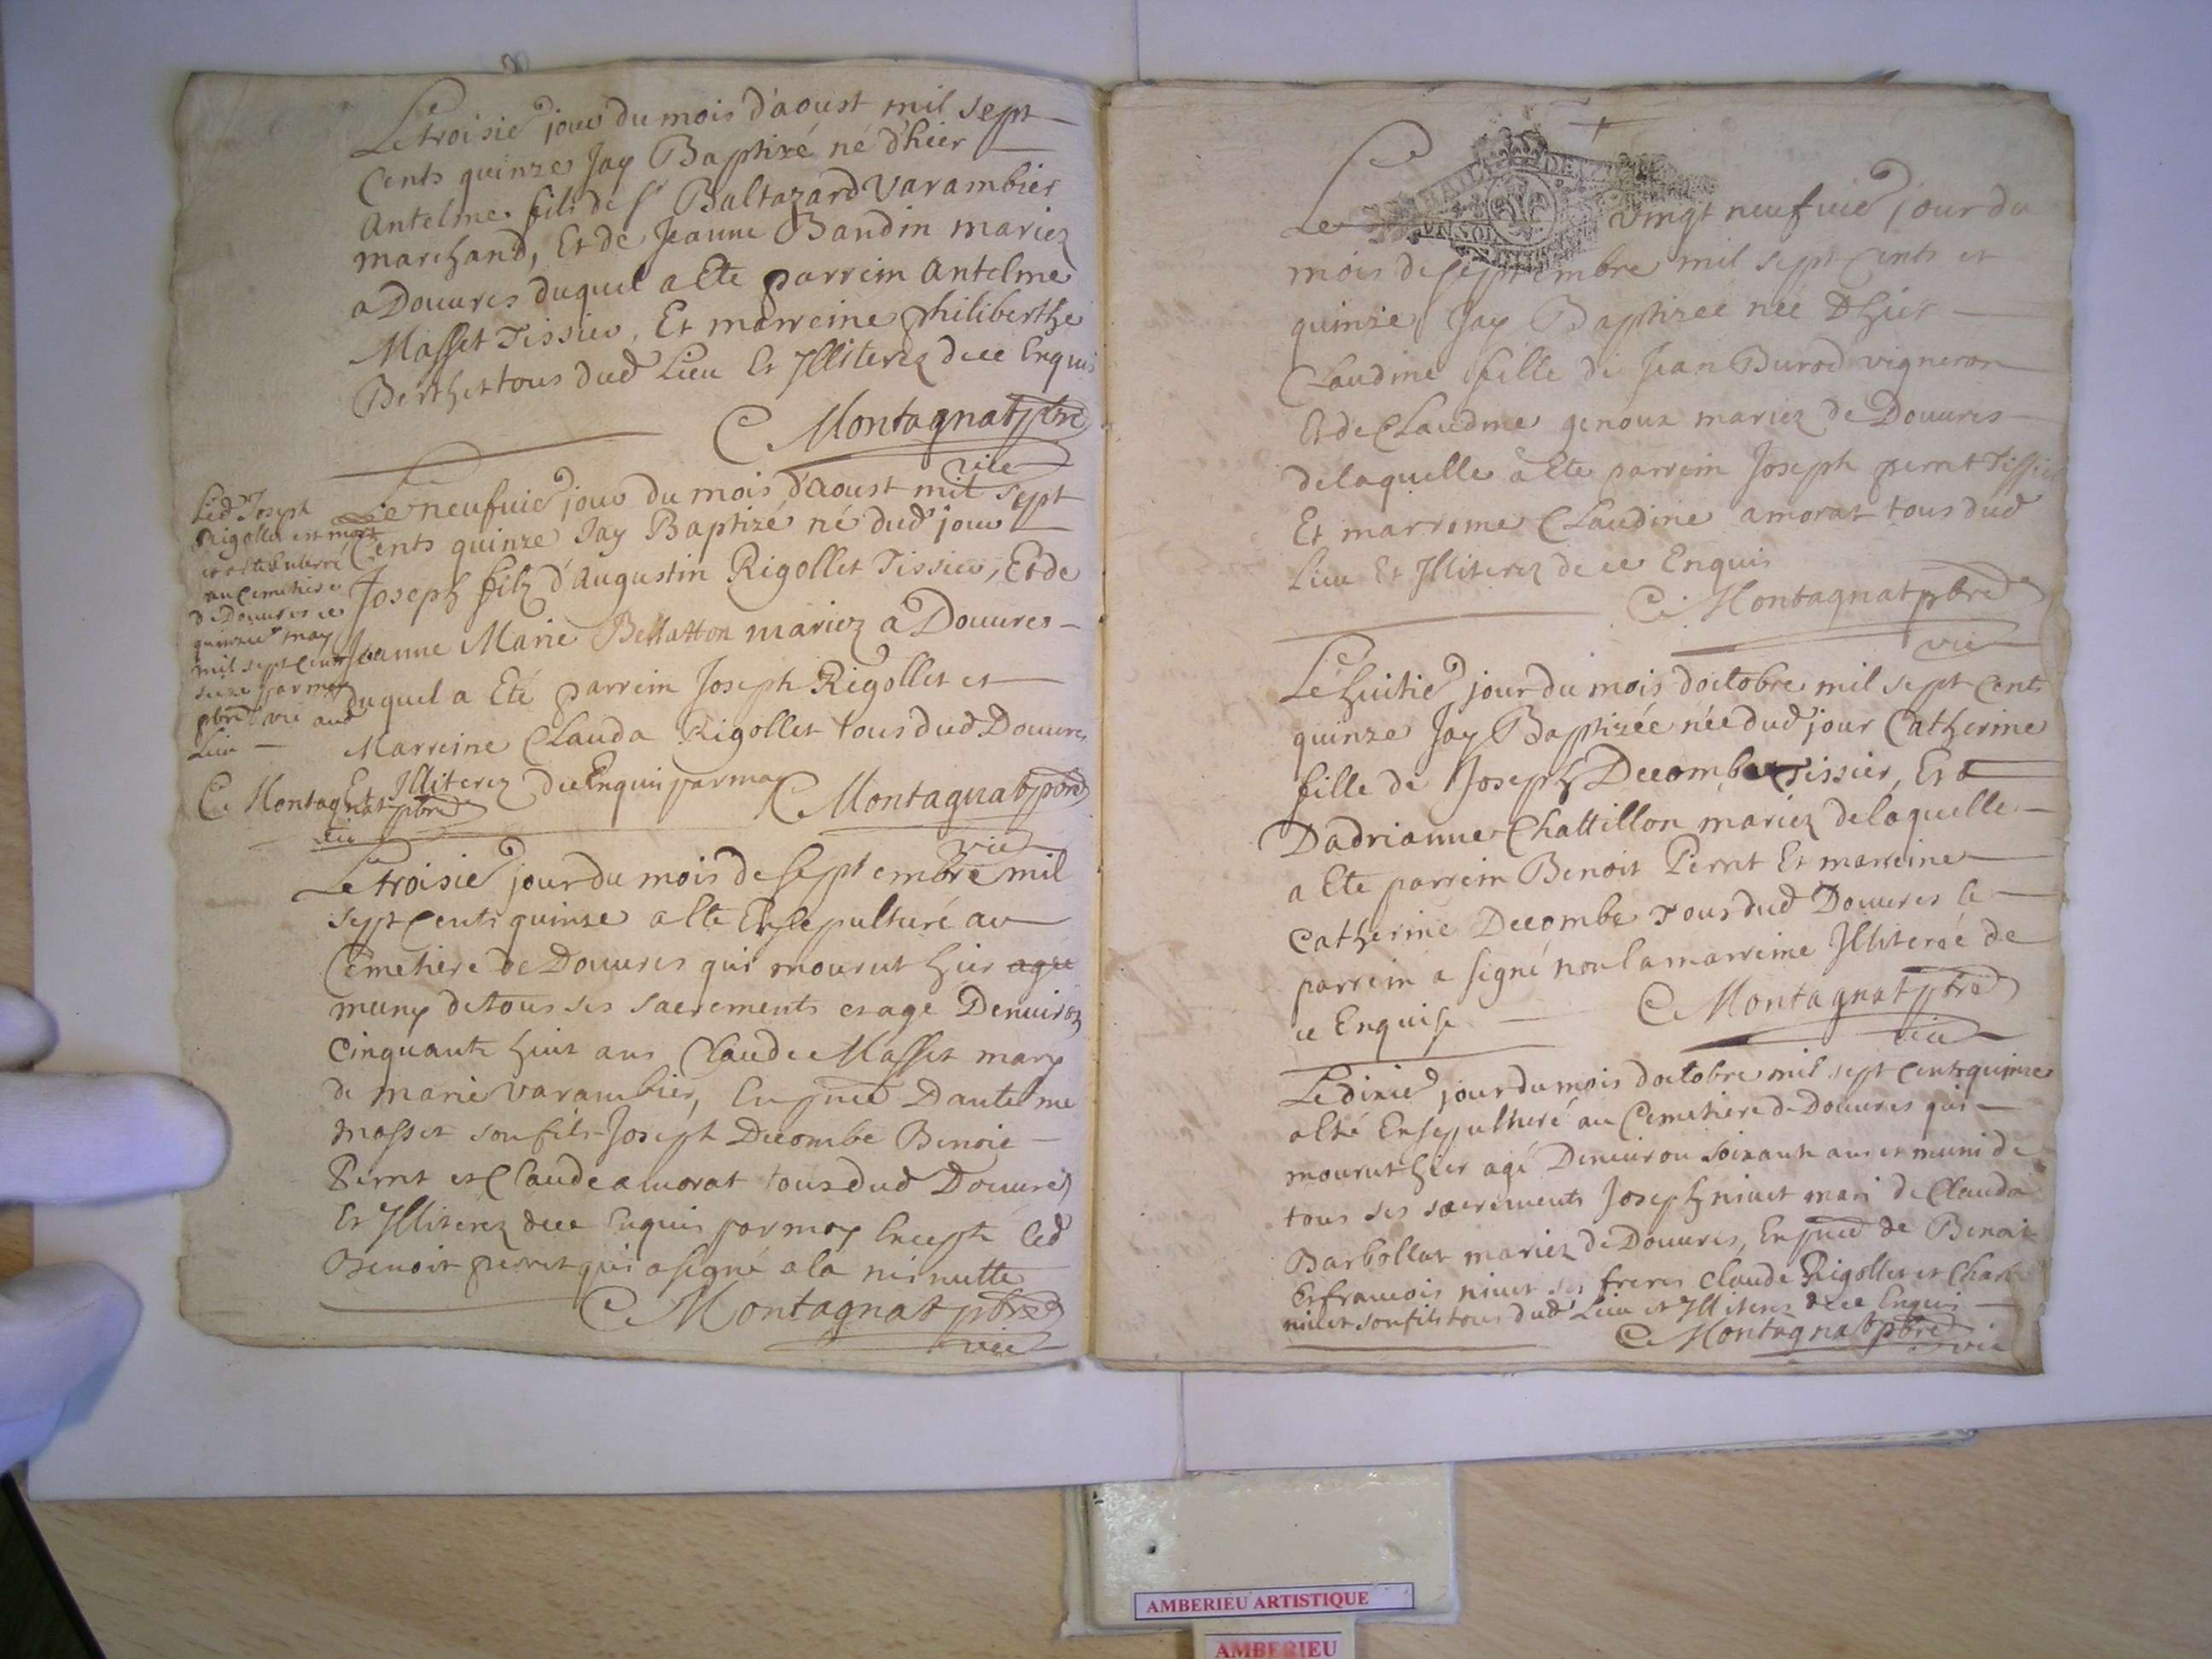 Le troisie jour du mois d'aoust mil sept
Cents quinze Jay Baptizé né d'hier
Antelme fils de Sr Baltazard Varambier
marchand, Et de Jeanne Baudin mariez
a Douures duquel a Ete parrein Antelme
Masset Tissier, Et marreine philiberthe
Berthet tous dud Lieu Et Jlliterez de ce Enquis
C Montagnat pbre
vic
Le neufuie jour du mois d'aoust mil sept
Cents quinze Jay Baptizé né dud jour
Joseph filz d'augustin Rigollet Tissier, Et de
Jeanne Marie Bellatton mariez a Douures
duquel a Eté parrein Joseph Rigollet et
Marreine Clauda Rigollet tous dud Douures
Et Jlliterez de ce Enquis par moy C Montagnat pbre
vic
Led Joseph
Rigollet est mort
et a ete Enterré
au cemetiere
de Douures ce
quinzie may
mil sept Cents
seize par moy
pbre vic aud
Lieu
C Montagnat pbre
vic
Le troisie jour du mois de septembre mil
sept Cents quinze a Ete Ensepulturé au
Cemetiere de Douures qui mourut hier agé
muny de tous ses sacrements et agé Denuiron
Cinquante huit ans Claude Masset mary
de marie Varambier, En pnce Dantelme
Masset son fils Joseph Decombe Benoit
Perret et Claude amorat tous dud Douures
Et Jlliterez de ce Enquis par moy Excepté led
Benoit perret qui a signé a la minutte
C Montagnat pbre
vic
Le vingt neufuie jour du
mois de septembre mil sept Cents et
quinze Jay Baptizée née Dhier
Claudine fille de Jean Burod vigneron
Et de Claudine genoux mariez de Douures
de laquelle a Ete parrein Joseph perret Tissier
Et marreine Claudine amorat tous dud
Lieu Et Jlliterez de ce Enquis
C Montagnat pbre
vic
Le huitie jour du mois doctobre mil sept Cents
quinze Jay Baptizée née dud jour Catherine
fille de Joseph Decombe Tissier, Et
Dadrianne Chattillon mariez de laquelle
a Ete parrein Benoit Perret Et marreine
Catherine Decombe Tous dud Douures le
parrein a signé non la marreine Jlliterée de
ce Enquise
C Montagnat pbre
vic
Le dixie jour du mois doctobre mil sept Cents quinze
a Eté Ensepulturé au Cemetiere de Douures qui
mourut hier agé Denuiron soixante ans et muni de
tous ses sacrements Joseph niuet mari de Clauda
Barbollat mariez de Douures, En pnce de Benoit
Et francois niuet ses freres Claude Rigollet et Charle
niuet son fils tous dud Lieu et Jlliterez de ce Enquis
C Montagnat pbre
vic
AMBERIEU ARTISTIQUE
AMBERIEU